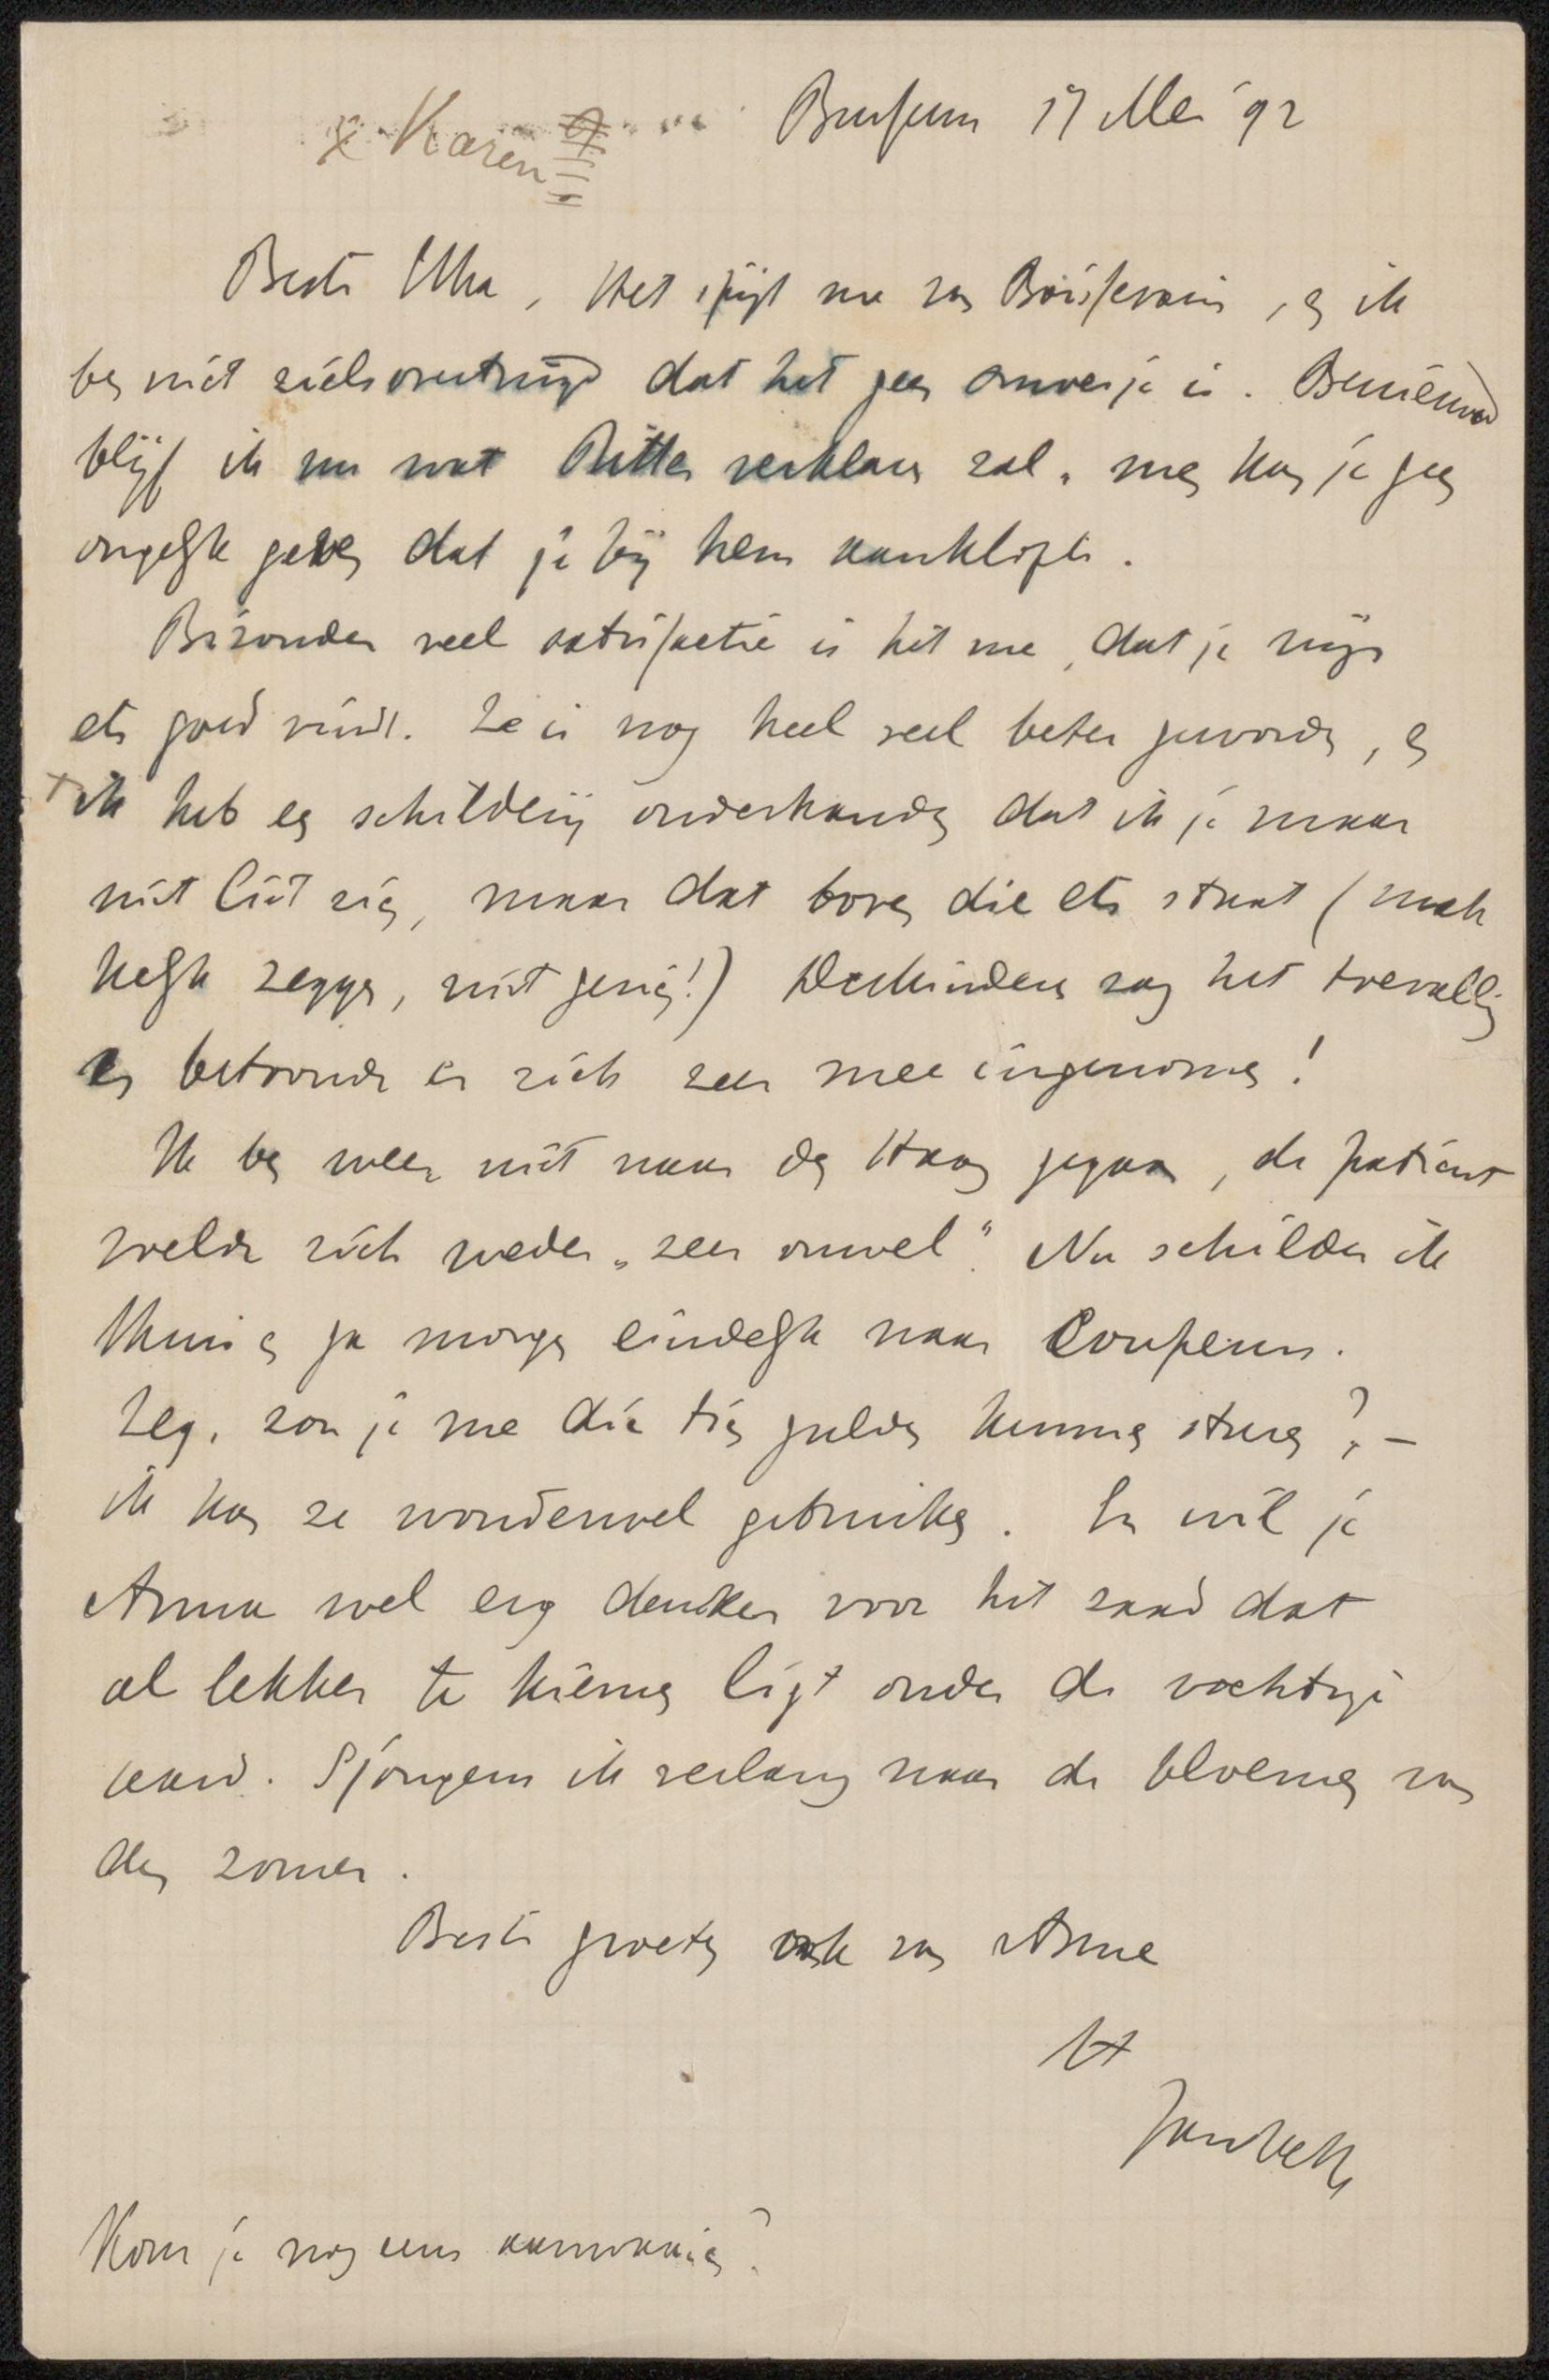 x Karen
Bussum 17 Mei '92
Beste Uka, Het spijt me van Boissevain, en ik
ben niet zielsovertuigd dat het geen omweije is. Benieuwd
blijf ik nu wat Ritter verklaren zal, men kan je geen
ongelijk geven dat je bij hem aanklopte.
Bizonder veel satisfactie is het me, dat je mijn
ets goed vindt. Ze is nog heel veel beter geworden, en
ik heb een schilderij onderhanden dat ik je maar
niet liet zien, maar dat boven die ets staat (makkelijk
zeggen, niet zien!) Derkinderen zag het toevallig
en betoonde er zich zeer mee ingenomen!
Ik ben weer niet naar den Haag gegaan, de patient
voelde zich weder „zeer onwel". Nu schilder ik
thuis en ga morgen eindelijk naar Couperus.
Zeg, zou je me die tien gulden kunnen sturen? —
ik kan ze wonderwel gebruiken. En wil je
Anna wel erg danken voor het zaad dat
al lekker te kiemen ligt onder de vochtige
aard. Sjongens ik verlang naar de bloemen van
den zomer.
Beste groeten ook van Anne
tt
JanVeth
Kom je nog eens aanwaaien?